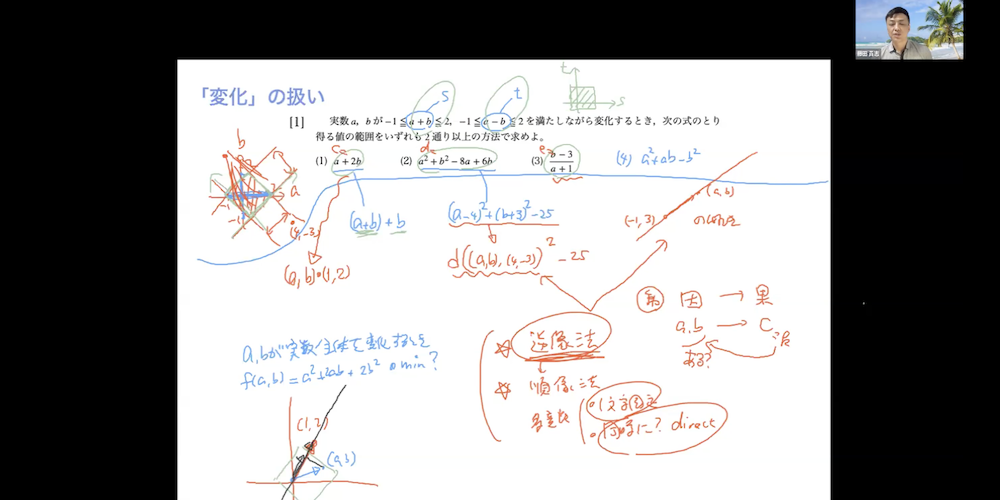 「変化」の扱い
s
t
t
s
[1] 実数 a, b が −1 ≦ a + b ≦ 2, −1 ≦ a − b ≦ 2 を満たしながら変化するとき, 次の式のとり
得る値の範囲をいずれも 2 通り以上の方法で求めよ。
(1) a + 2b (2) a² + b² − 8a + 6b (3) b − 3 / a + 1 (4) a²+ab−b²
b
a
−1
2
−1
(4,−3)
(a+b)+b
(a−4)²+(b+3)²−25
(a,b)
(−1,3)
(a,b)•(1,2)
d((a,b),(4,−3))²−25
因 → 果
a,b → C
ある?
逆像法
順像法
多変数
1文字固定
同時に? direct
a,bが実数全体を変化するとき
f(a,b)=a²+2ab+2b² の min?
(1,2)
(a,b)